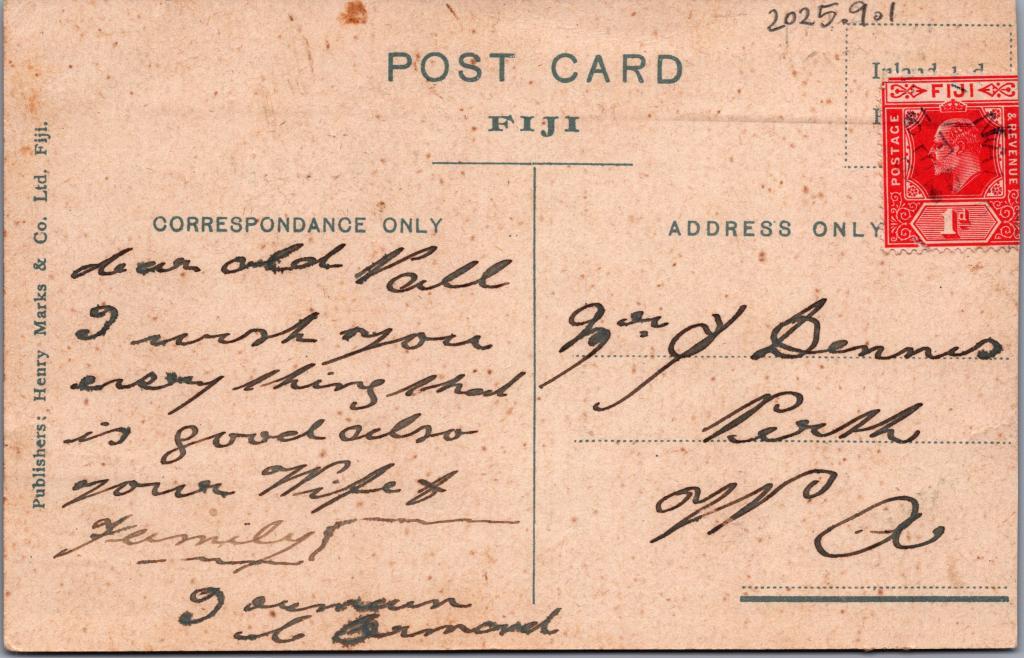 2025.9.1
POST CARD
FIJI
Inland
FIJI
POSTAGE
& REVENUE
1d
Publishers; Henry Marks & Co. Ltd, Fiji.
CORRESPONDANCE ONLY
dear old Pall
I wish you
every thing that
is good also
your Wife &
Family
I remain
Ormond
ADDRESS ONLY
Mr J Dennis
Perth
W A